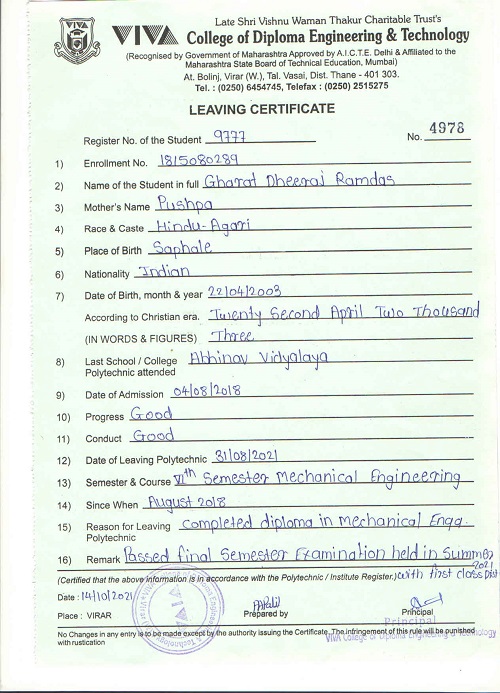 Late Shri Vishnu Waman Thakur Charitable Trust's
VIVA College of Diploma Engineering & Technology
(Recognised by Government of Maharashtra Approved by A.I.C.T.E. Delhi & Affiliated to the
Maharashtra State Board of Technical Education, Mumbai)
At. Bolinj, Virar (W.), Tal. Vasai, Dist. Thane - 401 303.
Tel. : (0250) 6454745, Telefax : (0250) 2515275
LEAVING CERTIFICATE
Register No. of the Student 9777 No. 4978
1) Enrollment No. 1815080289
2) Name of the Student in full Gharat Dheeraj Ramdas
3) Mother's Name Pushpa
4) Race & Caste Hindu-Agari
5) Place of Birth Saphale
6) Nationality Indian
7) Date of Birth, month & year 22/04/2003
According to Christian era. Twenty Second April Two Thousand
(IN WORDS & FIGURES) Three
8) Last School / College Abhinav Vidyalaya
Polytechnic attended
9) Date of Admission 04/08/2018
10) Progress Good
11) Conduct Good
12) Date of Leaving Polytechnic 31/08/2021
13) Semester & Course VIth Semester Mechanical Engineering
14) Since When August 2018
15) Reason for Leaving completed diploma in Mechanical Engg.
Polytechnic
16) Remark Passed final Semester Examination held in Summer
2021
(Certified that the above information is in accordance with the Polytechnic / Institute Register.) with first class Dist
Date : 14/10/2021
Place : VIRAR Prepared by Principal
Principal
No Changes in any entry is to be made except by the authority issuing the Certificate. The infringement of this rule will be punished
VIVA College of Diploma Engineering & Technology
with rustication